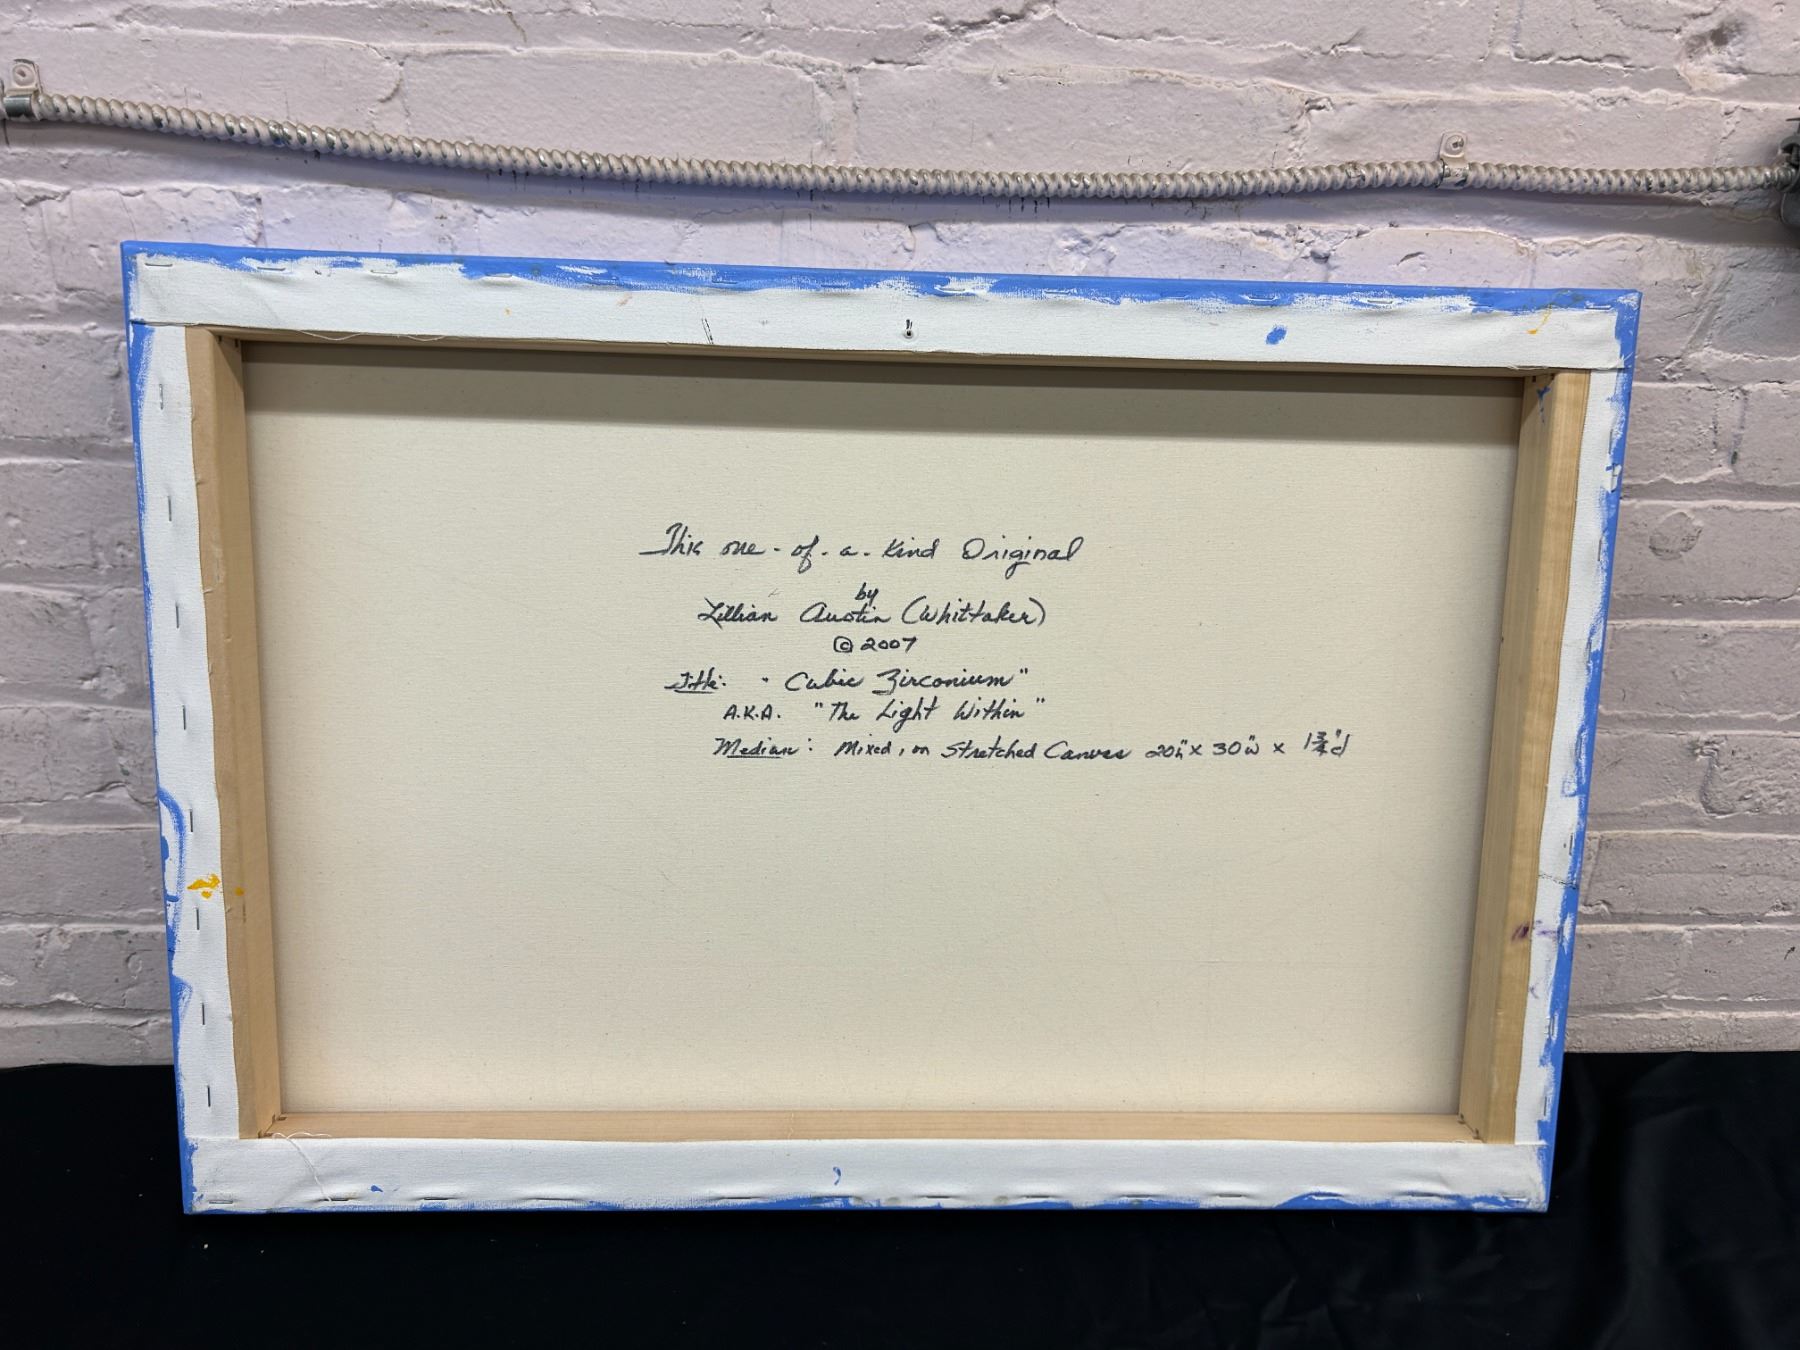 This one-of-a-Kind Original
by
Lillian Austin (Whittaker)
© 2007
Title: "Cubic Zirconium"
A.K.A. "The Light Within"
Median: Mixed, on Stretched Canvas 20"h x 30"w x 1 3/4"d